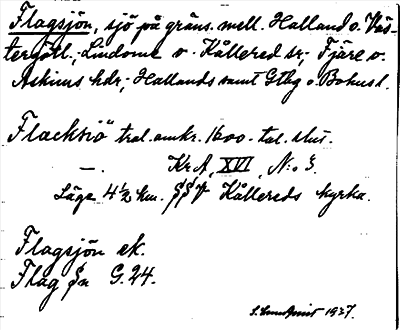 Flagsjön, sjö på gräns. mell. Halland o. Väs-
tergötl., Lindome o. Kållered sr, Fjäre o.
Askims hdr, Hallands samt Gtbg o. Bohusl.
Flacksiö tral. omkr. 1600-tal. slut.
—. Kr A, XVI, N:o 3.
Läge 4½ km. Kållereds kyrka.
Flagsjön ek.
Flag G. 24.
1937.